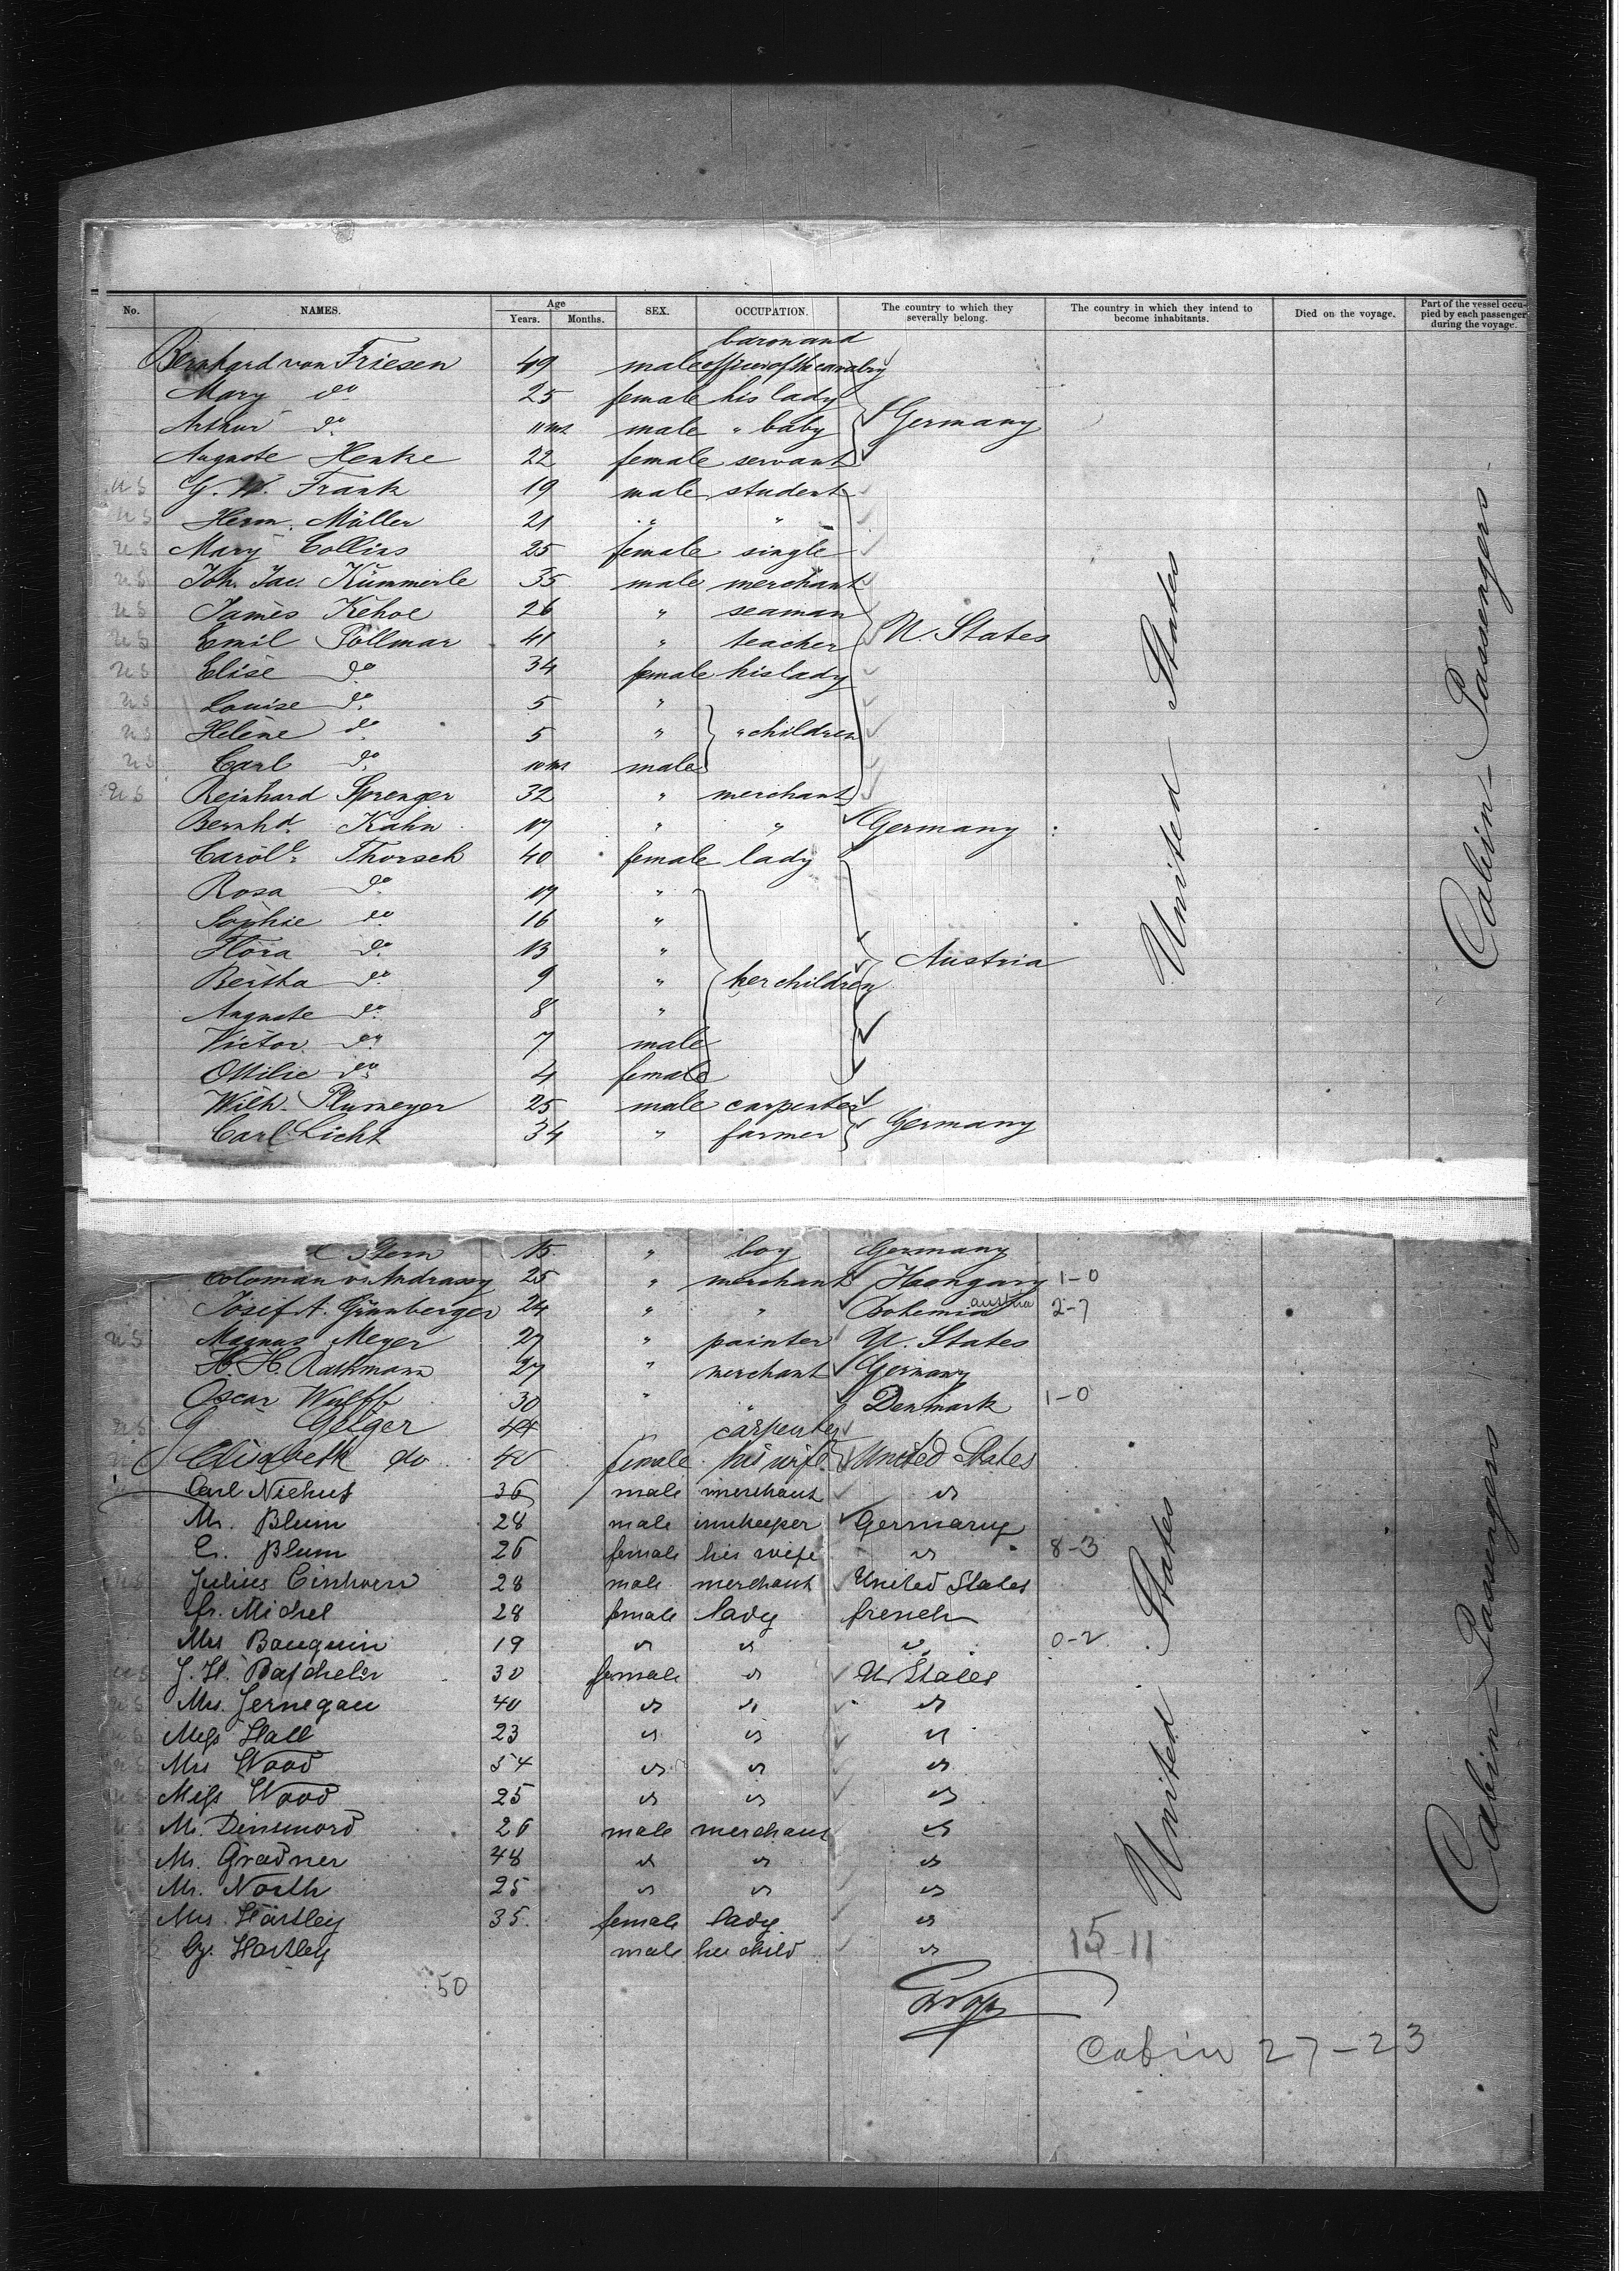 No. NAMES. Age Years. Months. SEX. OCCUPATION. The country to which they severally belong. The country in which they intend to become inhabitants. Died on the voyage. Part of the vessel occupied by each passenger during the voyage.
baron and
Bernhard von Friesen 49 male officer of the cavalry
Mary do 25 female his lady
Arthur do 11 ms male " baby Germany
Auguste Henke 22 female servant
U S G. W. Frank 19 male student
U S Herm. Müller 21 " "
U S Mary Collins 25 female single
U S Joh. Jac. Kümmerle 35 male merchant
U S James Kehoe 26 " seaman
U S Emil Pollmar 41 " teacher U. States
U S Elise do 34 female his lady
U S Louise do 5 "
U S Helene do 5 " " children
U S Carl do 10 ms male
U S Reinhard Sprenger 32 " merchant
Bernhd. Kahn 17 " " Germany
Carole. Thorsch 40 female lady
Rosa do 17 "
Sophie do 16 "
Flora do 13 " Austria
Bertha do 9 " her children
Auguste do 8 "
Victor do 7 male
Ottilie do 4 female
Wilh. Plumeyer 25 male carpenter
Carl Licht 34 " farmer Germany
United States
Cabin Passengers
Stern 15 " boy Germany
Coloman v. Andrassy 25 " merchant Hongary 1-0
Josef A. Grünberger 24 " " Bohemia Austria 2-7
U S Magnus Meyer 27 " painter U. States
H. H. Rathmann 27 " merchant Germany
Oscar Wulff 30 " " Denmark 1-0
U S G Geiger 44 " carpenter
Elisabeth do 40 female his wife United States
Carl Niehus 36 male merchant "
M. Blum 28 male innkeeper Germany
C. Blum 26 female his wife " 8-3
U S Julius Einhorn 28 male merchant United States
fr. Michel 28 female lady french
Mrs Bauquin 19 " " " 0-2
U S J. H. Batchelir 30 female " U. States
U S Mrs. Jernegau 40 " " "
U S Miss Hall 23 " " "
U S Mrs Wood 54 " " "
U S Miss Wood 25 " " "
U S Mr. Dinsmord 26 male merchant "
Mr. Gradner 48 " " "
Mr. North 25 " " "
Mrs Hartley 35 female lady "
Hartley male her child " 15-11
50
Cabin 27-23
United States
Cabin Passengers